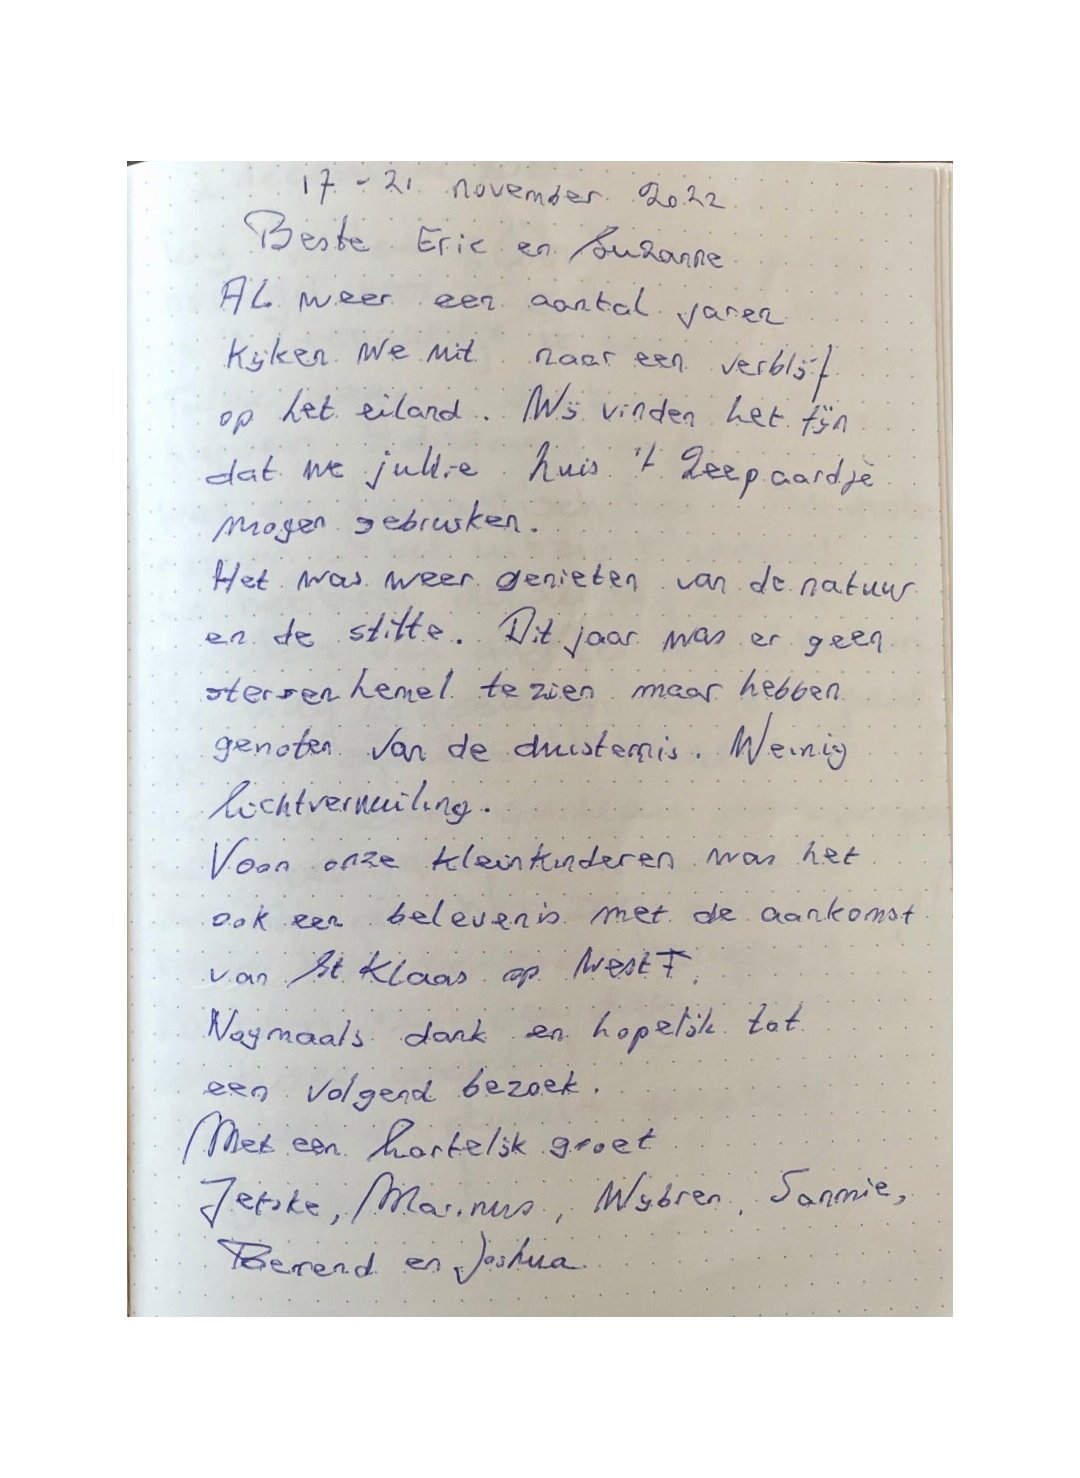 17 - 21 november 2022
Beste Eric en Suzanne
Al weer een aantal jaren
kijken we uit naar een verblijf
op het eiland. Wij vinden het fijn
dat we jullie huis 't Zeepaardje
mogen gebruiken.
Het was weer genieten van de natuur
en de stilte. Dit jaar was er geen
sterrenhemel te zien maar hebben
genoten van de duisternis. Weinig
lichtvervuiling.
Voor onze kleinkinderen was het
ook een belevenis met de aankomst
van St Klaas op West T.
Nogmaals dank en hopelijk tot
een volgend bezoek.
Met een hartelijk groet
Jetske, Marinus, Wybren, Sannie,
Berend en Joshua